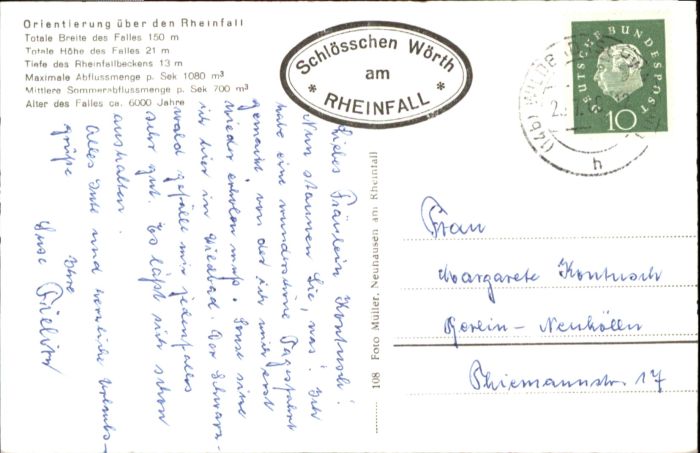 Orientierung über den Rheinfall
Totale Breite des Falles 150 m
Totale Höhe des Falles 21 m
Tiefe des Rheinfallbeckens 13 m
Maximale Abflussmenge p. Sek 1080 m³
Mittlere Sommerabflussmenge p. Sek 700 m³
Alter des Falles ca. 6000 Jahre
Schlösschen Wörth
am
* RHEINFALL *
DEUTSCHE BUNDESPOST
10
(14b)
h
Liebes Fräulein Kontusch!
Nun staunen Sie, was? Ich
habe eine wunderschöne Tagesfahrt
gemacht von der ich mich erst
wieder erholen muß. Sonst bin
ich hier in Wildbad. Der Schwarz-
wald gefällt mir jedenfalls
sehr gut. Es läßt sich schon
aushalten.
Alles Gute und herzliche Urlaubs-
grüße
Ihre
108 Foto Müller, Neuhausen am Rheinfall
Frau
Margarete Kontusch
Berlin-Neukölln
Thiemannstr. 17